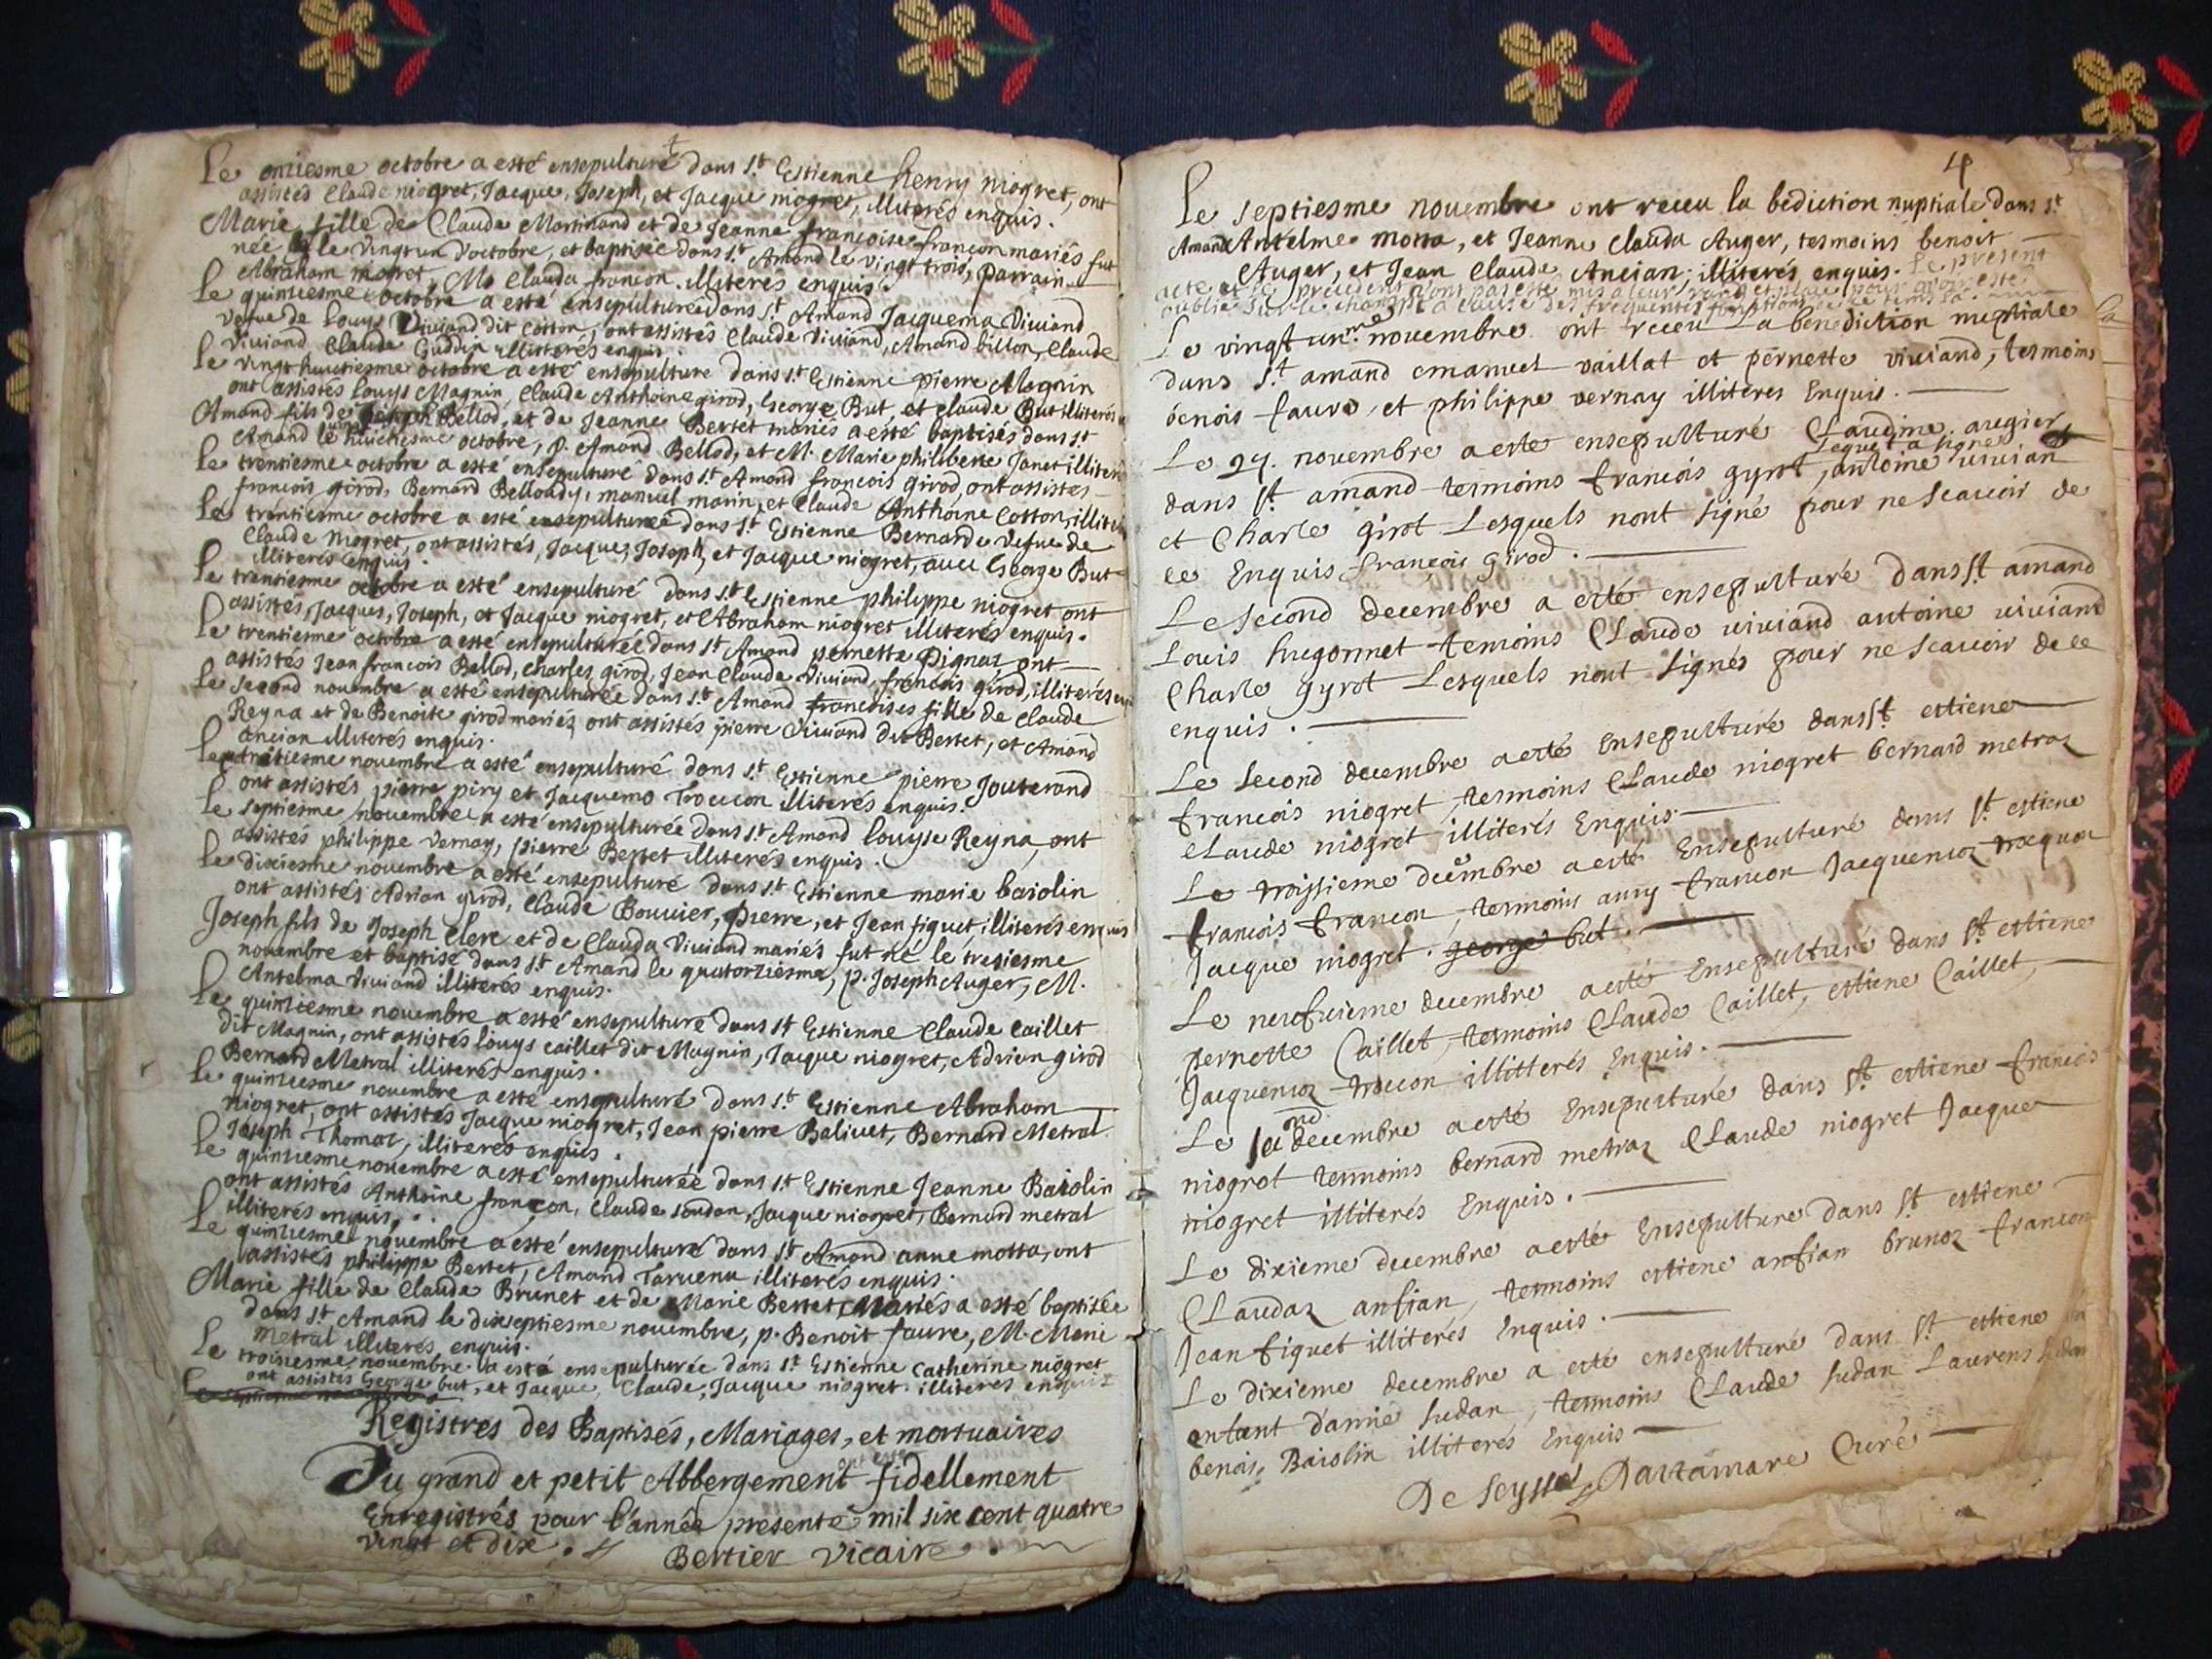 Le onziesme octobre a esté ensepulturé dans St Estienne henry niogret, ont
assistés Claude niogret, Jacque, Joseph, et Jacque niogret, illiterés enquis.
Marie fille de Claude Martinand et de Jeanne francoise francon mariés fut
née le vingt un d'octobre, et baptisée dans St Amand le vingt trois, parrain
Abraham niogret, M. Clauda francon. illiterés enquis.
Le quinziesme octobre a esté ensepulturée dans St Amand Jacquema Viviand
vefue de Louys Viviand dit Cotton, ont assistés Claude Viviand, Amand billon, Claude
Viviand Claude Guddin illiterés enquis.
Le vingt huictiesme octobre a esté ensepulturé dans St Estienne pierre Magnin
ont assistés Louys Magnin, Claude Anthoine girod, George But, et Claude But illiterés
Amand fils de Bellod, et de Jeanne Bertet mariés a esté baptisés dans St
Amand le huictiesme octobre, p. Amand Bellod, et M. Marie philiberte Janet illiterés
Le trentiesme octobre a esté ensepulturé dans St Amand francois girod, ont assistés
francois girod, Bernard Belloudy, manuel marin, et Claude Anthoine Cotton, illiterés
Le trentiesme octobre a esté ensepulturée dans St Estienne Bernarde vefue de
Claude niogret, ont assistés, Jacque, Joseph, et Jacque niogret, avec George But
illiterés enquis.
Le trentiesme octobre a esté ensepulturé dans St Estienne philippe niogret ont
assistés, Jacques, Joseph, et Jacque niogret, et Abraham niogret illiterés enquis.
Le trentiesme octobre a esté ensepulturée dans St Amand pernette Pignaz ont
assistés Jean francois Bellod, Charles girod, Jean Claude Viviand, francois girod, illiterés
Le second nouembre a esté ensepulturée dans St Amand francoises fille de Claude
Reyna et de Benoite girod mariés, ont assistés pierre Viviand dit Bertet, et Amand
Ancian illiterés enquis.
Le nouembre a esté ensepulturé dans St Estienne pierre Jouterand
ont assistés pierre piry et Jacquemo Troccon illiterés enquis.
Le septiesme nouembre a esté ensepulturée dans St Amand louyse Reyna, ont
assistés philippe Vernay, pierre Bertet illiterés enquis.
Le dixiesme nouembre a esté ensepulturé dans St Estienne marie baiolin
ont assistés Adrian girod, Claude Bouuier, pierre, et Jean figuet, illiterés enquis
Joseph fils de Joseph Clerc et de Clauda Viviand mariés fut né le tresiesme
nouembre et baptisé dans St Amand le quatorziesme, p. Joseph Auger, M.
Antelma Viviand illiterés enquis.
Le quinziesme nouembre a esté ensepulturé dans St Estienne Claude Caillet
dit Magnin, ont assistés louys caillet dit Magnin, Jacque niogret, Adrien girod
Bernard Metral illiterés enquis.
Le quinziesme nouembre a esté ensepulturé dans St Estienne Abraham
niogret, ont assistés Jacque niogret, Jean pierre Balivet, Bernard Metral
Joseph Thomas, illiterés enquis.
Le quinziesme nouembre a esté ensepulturée dans St Estienne Jeanne Baiolin
ont assistés Anthoine francon, Claude sudan, Jacque niogret, Bernard metral
illiterés enquis.
Le quinziesme nouembre a esté ensepulturé dans St Amand anne motta, ont
assistés philippe Bertet, Amand Taruenu illiterés enquis.
Marie fille de Claude Brunet et de Marie Bertet Mariés a esté baptizée
dans St Amand le dixseptiesme nouembre, p. Benoit faure, M. Marie
Metral illiterés enquis.
Le troisiesme nouembre a esté ensepulturée dans St Estienne Catherine niogret
ont assistés George but, et Jacque, Claude, Jacque niogret. illiteres enquis
Registres des Baptisés, Mariages, et mortuaires
Du grand et petit Abbergement ont esté fidellement
Enregistrés pour l'année presente mil six cent quatre
vingt et dix.
Bertier vicaire.
4
Le septiesme nouembre ont receu la bediction nuptiale dans St
Amand Antelme motta, et Jeanne Clauda Auger, tesmoins benoit
Auger, et Jean Claude Ancian; illiterés enquis. Le present
acte et le precedent n'ont pas esté mis a leur rang et place pour avoir esté
oublié sur le champ et a cause des frequentes fonctions de ce tems la
Le vingt un.me nouembre ont receu La benediction nuptiale
dans St amand emanuel vaillat et pernette viviand, tesmoins
benois faure, et philippe vernay illiteres Enquis.
Le 27. nouembre a esté ensepulturé Claudine augier
dans St amand tesmoins francois gyrot, lequel a signé antoine vivian
et Charle girot Lesquels nont signé pour ne scauoir de
ce Enquis françois Girod.
Le second decembre a esté ensepulturé dans St amand
Louis hugonnet temoins Claude viviand antoine viviand
Charle gyrot Lesquels nont signés pour ne scauoir de ce
enquis.
Le second decembre a esté Ensepulturé dans St estiene
francois niogret, tesmoins Claude niogret bernard metraz
claude niogret illiterés Enquis
Le troissieme decembre a esté Ensepulturé dans St estiene
francois francon, tesmoins aury francon Jacquemoz trocquon
Jacque niogret. george but.
Le neufuieme decembre a esté Ensepulturé dans St estiene
pernette Caillet, tesmoins Claude Caillet, estiene Caillet,
Jacquemoz troccon illitterés Enquis.
Le decembre a esté Ensepulturé dans St estiene francois
niogrot tesmoins bernard metraz Claude niogret Jacque
niogret illiterés Enquis.
Le dixieme decembre a esté Ensepulture dans St estiene
Claudaz anfian, temoins estiene anfian brunoz francon
Jean figuet illiterés Enquis.
Le dixieme decembre a esté ensepulturé dans St estiene un
enfant d'amié sudan, tesmoins Claude sudan Laurens sudan
benois Baiolin illiterés Enquis
De Seyssel Dartamare Curé